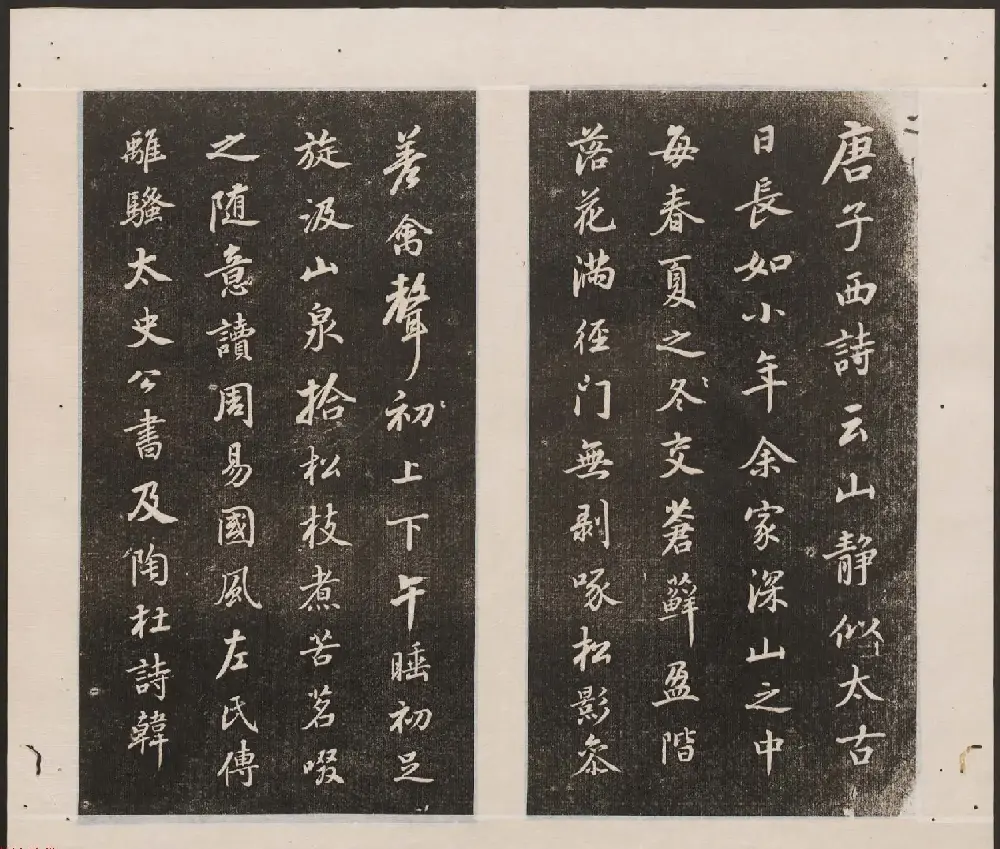 唐子西詩云山静似太古
日長如小年余家深山之中
每春夏之冬交蒼蘚盈階
落花満徑門無剥啄松影叅
差禽聲初上下午睡初足
旋汲山泉拾松枝煮苦茗啜
之随意讀周易國風左氏傳
離騷太史公書及陶杜詩韓